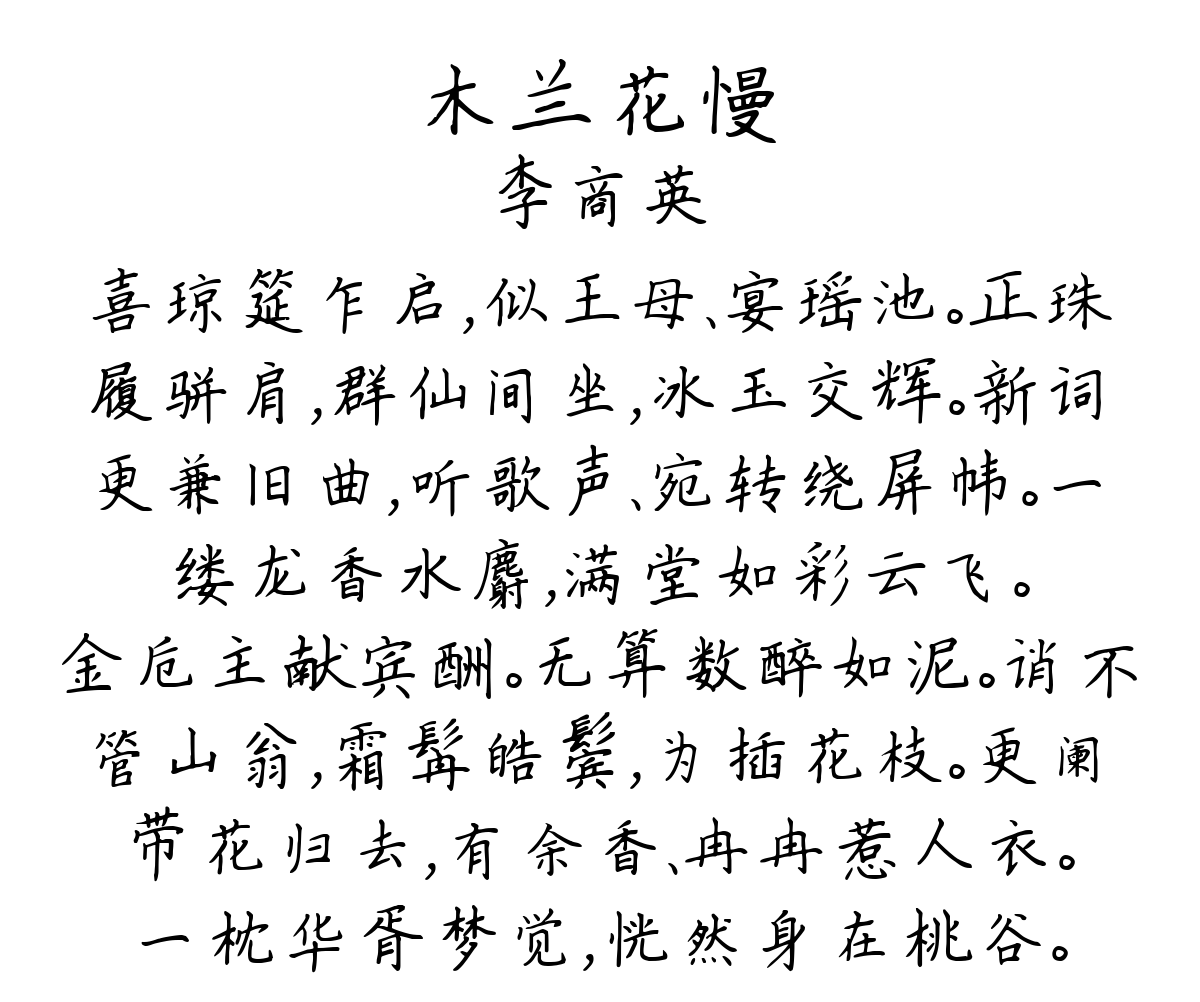 木兰花慢
李商英
喜琼筵乍启,似王母、宴瑶池。正珠
履骈肩,群仙间坐,冰玉交辉。新词
更兼旧曲,听歌声、宛转绕屏帏。一
缕龙香水麝,满堂如彩云飞。
金卮主献宾酬。无算数醉如泥。诮不
管山翁,霜髯皓鬓,为插花枝。更阑
带花归去,有余香、冉冉惹人衣。
一枕华胥梦觉,恍然身在桃谷。